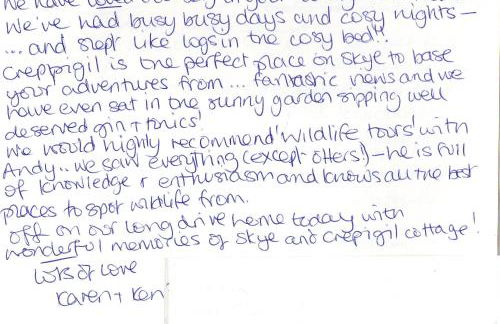 We have loved
We've had busy busy days and cosy nights –
... and slept like logs in the cosy bed!!
Creppigil is the perfect place on Skye to base
your adventures from ... fantastic news and we
have even sat in the sunny garden sipping well
deserved gin + tonics!
We would highly recommend 'wildlife tours' with
Andy.. we saw everything (except otters!) – he is full
of knowledge + enthusiasm and knows all the best
places to spot wildlife from.
Off on our long drive home today with
wonderful memories of Skye and Crepigil cottage!
Lots of love
Karen + Ken